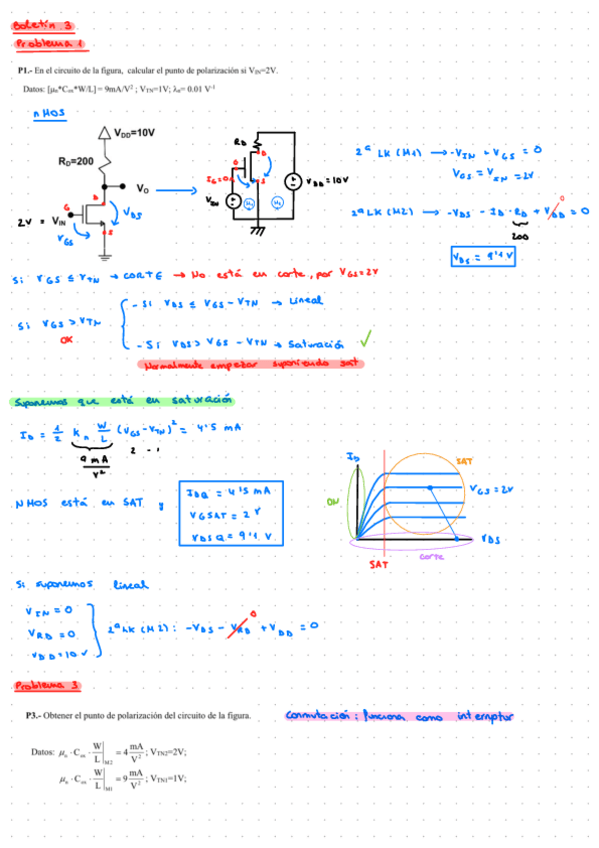 Boletín 3
Problema 1
P1.- En el circuito de la figura, calcular el punto de polarización si VIN=2V.
Datos: [μn*Cox*W/L] = 9mA/V² ; VTN=1V; λn= 0.01 V⁻¹
nMOS
VDD=10V
RD=200
VO
2V = VIN
G
D
S
VGS
VDS
RD
D
G
S
IG=0
VIN
M1
M2
VDD=10V
2ª LK (M1) → -VIN + VGS = 0
VGS = VIN = 2V
2ª LK (M2) → -VDS - ID · RD + VDD = 0
0
200
VDS = 9'1 V
Si VGS ≤ VTN → CORTE → No está en corte, por VGS=2V
Si VGS > VTN
OK
- Si VDS ≤ VGS - VTN → Lineal
- Si VDS > VGS - VTN → Saturación ✓
Normalmente empezar suponiendo sat
Suponemos que está en saturación
ID = 1/2 Kn W/L (VGS - VTN)² = 4'5 mA
9 mA/V²
2 - 1
NMOS está en SAT y
IDQ = 4'5 mA
VGSAT = 2 V
VDSQ = 9'1 V
ID
SAT
ON
VGS = 2V
VDS
SAT
corte
Si suponemos lineal
VIN = 0
VRD = 0
VDD = 10 V
2ª LK (M2): -VDS - VRD + VDD = 0
0
Problema 3
P3.- Obtener el punto de polarización del circuito de la figura.
Conmutación: funciona como interruptor
Datos: μn · Cox · W/L |M2 = 4 mA/V² ; VTN2=2V;
μn · Cox · W/L |M1 = 9 mA/V² ; VTN1=1V;